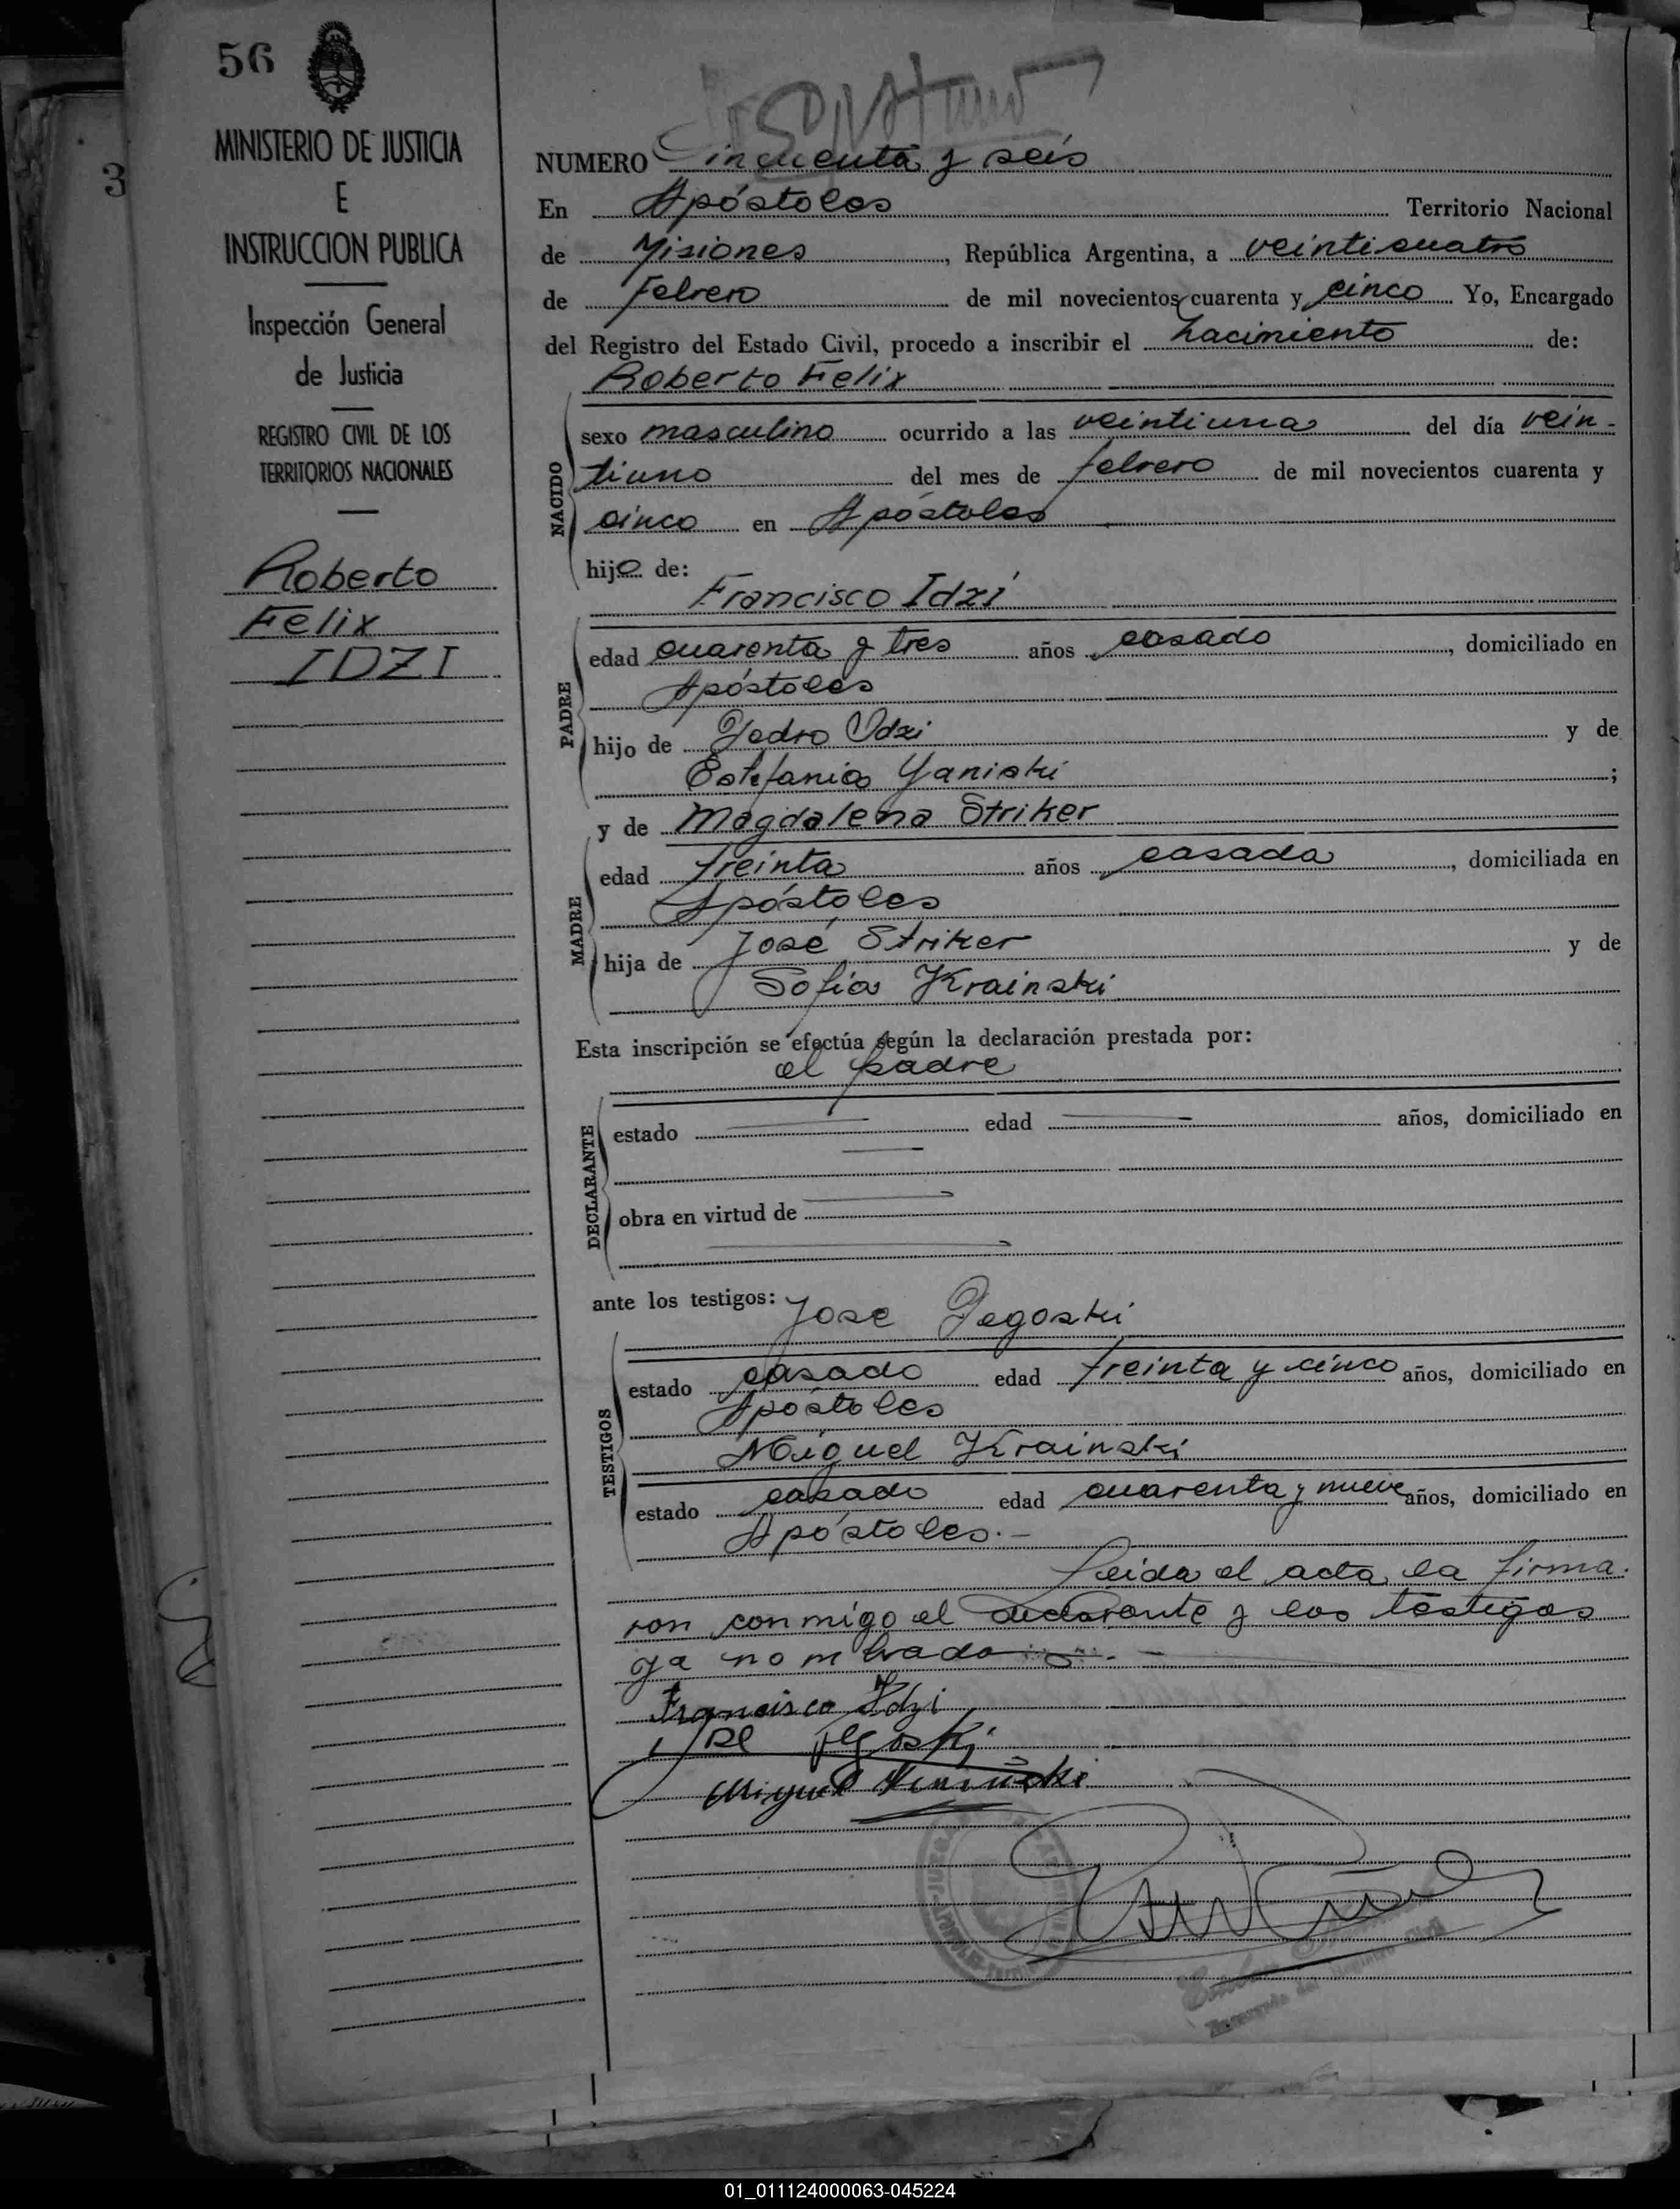 56
MINISTERIO DE JUSTICIA
E
INSTRUCCION PUBLICA
Inspección General
de Justicia
REGISTRO CIVIL DE LOS
TERRITORIOS NACIONALES
Roberto
Felix
IDZI
3
NUMERO Cincuenta y seis
En Apóstoles Territorio Nacional
de Misiones, República Argentina, a veinticuatro
de febrero de mil novecientos cuarenta y cinco Yo, Encargado
del Registro del Estado Civil, procedo a inscribir el nacimiento de:
Roberto Felix
NACIDO
sexo masculino ocurrido a las veintiuna del día vein-
tiuno del mes de febrero de mil novecientos cuarenta y
cinco en Apóstoles
hijo de:
Francisco Idzi
PADRE
edad cuarenta y tres años casado, domiciliado en
Apóstoles
hijo de Pedro Idzi y de
Estefania Yaniski;
y de Magdalena Striker
MADRE
edad treinta años casada, domiciliada en
Apóstoles
hija de José Striker y de
Sofía Krainski
Esta inscripción se efectúa según la declaración prestada por:
el padre
DECLARANTE
estado edad años, domiciliado en
obra en virtud de
ante los testigos: Jose Pegoski
TESTIGOS
estado casado edad treinta y cinco años, domiciliado en
Apóstoles
Miguel Krainski
estado casado edad cuarenta y nueve años, domiciliado en
Apóstoles.-
Leida el acta la firma-
ron conmigo el declarante y los testigos
ya nombrado
Francisco Idzi
Miguel Krainski
01_011124000063-045224